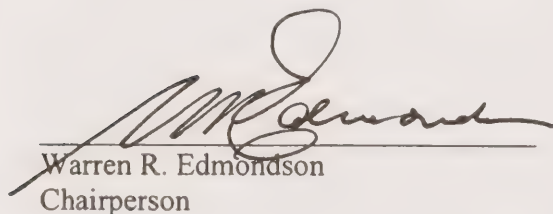 WREdmondson
Warren R. Edmondson
Chairperson